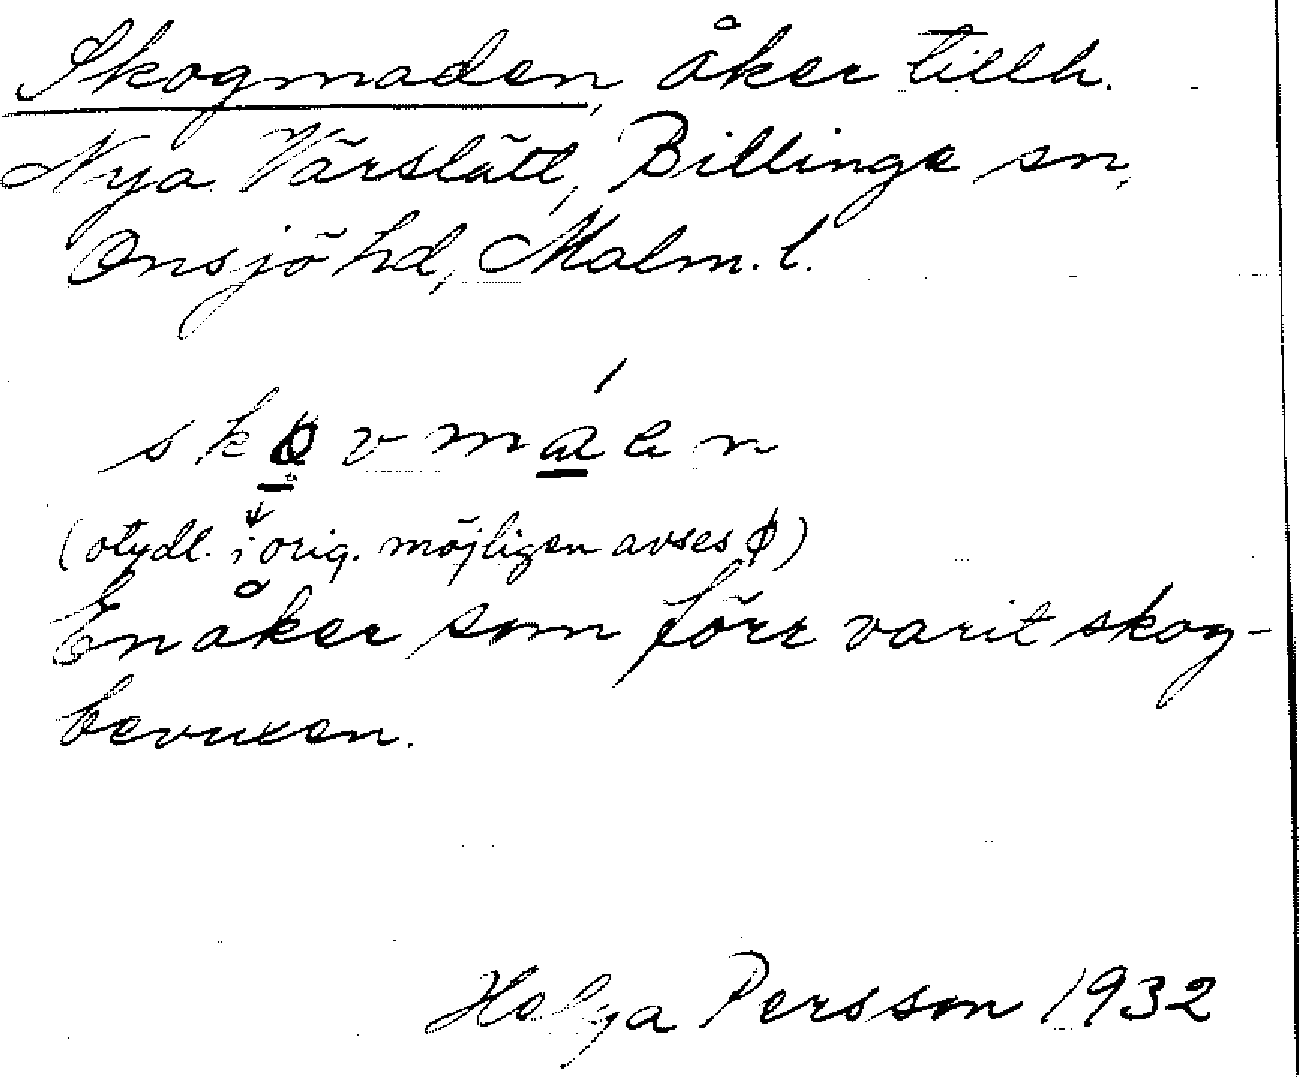 Skogmaden, åker tillh.
Nya Värslätt, Billinge sn,
Onsjö hd, Malm. l.
skovmáen
(otydl. i orig. möjligen avses ϕ)
En åker som förr varit skog-
bevuxen.
Helga Persson 1932